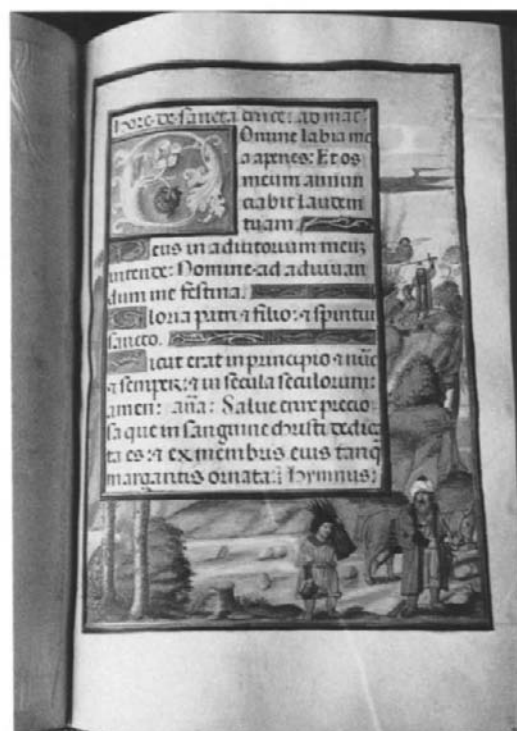 hore de sancta cruce: ad mat.
Domine labia me
a aperies: Et os
meum annun
ciabit laudem
tuam.
Deus in adiutorium meuz
intende: Domine ad adiuuan
dum me festina.
Gloria patri ⁊ filio: ⁊ spiritui
sancto.
Sicut erat in principio ⁊ nūc
⁊ semper: ⁊ in secula seculorum:
amen: aña: Salue crux precio
sa que in sanguine christi dedica
ta es: ⁊ ex membris eius tanq̄
margaritis ornata: hymnus: